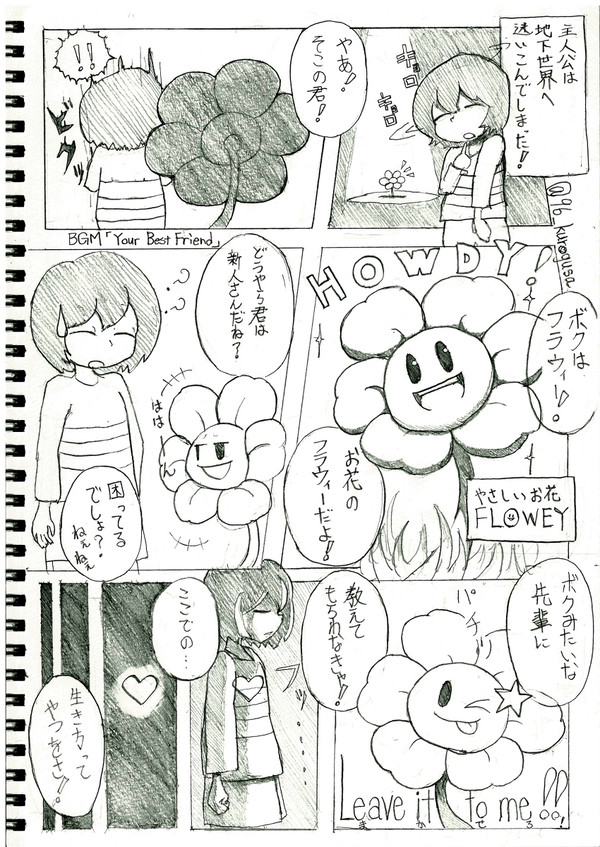 主人公は
地下世界へ
迷いこんでしまった!
キョロ
キョロ
@96_kurogusa
やあ!
そこの君!
!!
ビクッ
BGM「Your Best Friend」
HOWDY!
ボクは
フラウィー!
お花の
フラウィーだよ!
やさしいお花
FLOWEY
どうやら君は
新人さんだね?
? ?
ははーん
困ってる
でしょ?
ねぇねぇ
ボクみたいな
先輩に
パチッ
教えて
もらわなきゃ!
Leave it to me!!
まかせろ!
ここでの…
フッ……
生き方って
やつをさ!